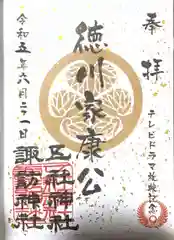 奉拝
テレビドラマ放映記念
徳川家康公
五社神社
諏訪神社
令和五年六月二十一日